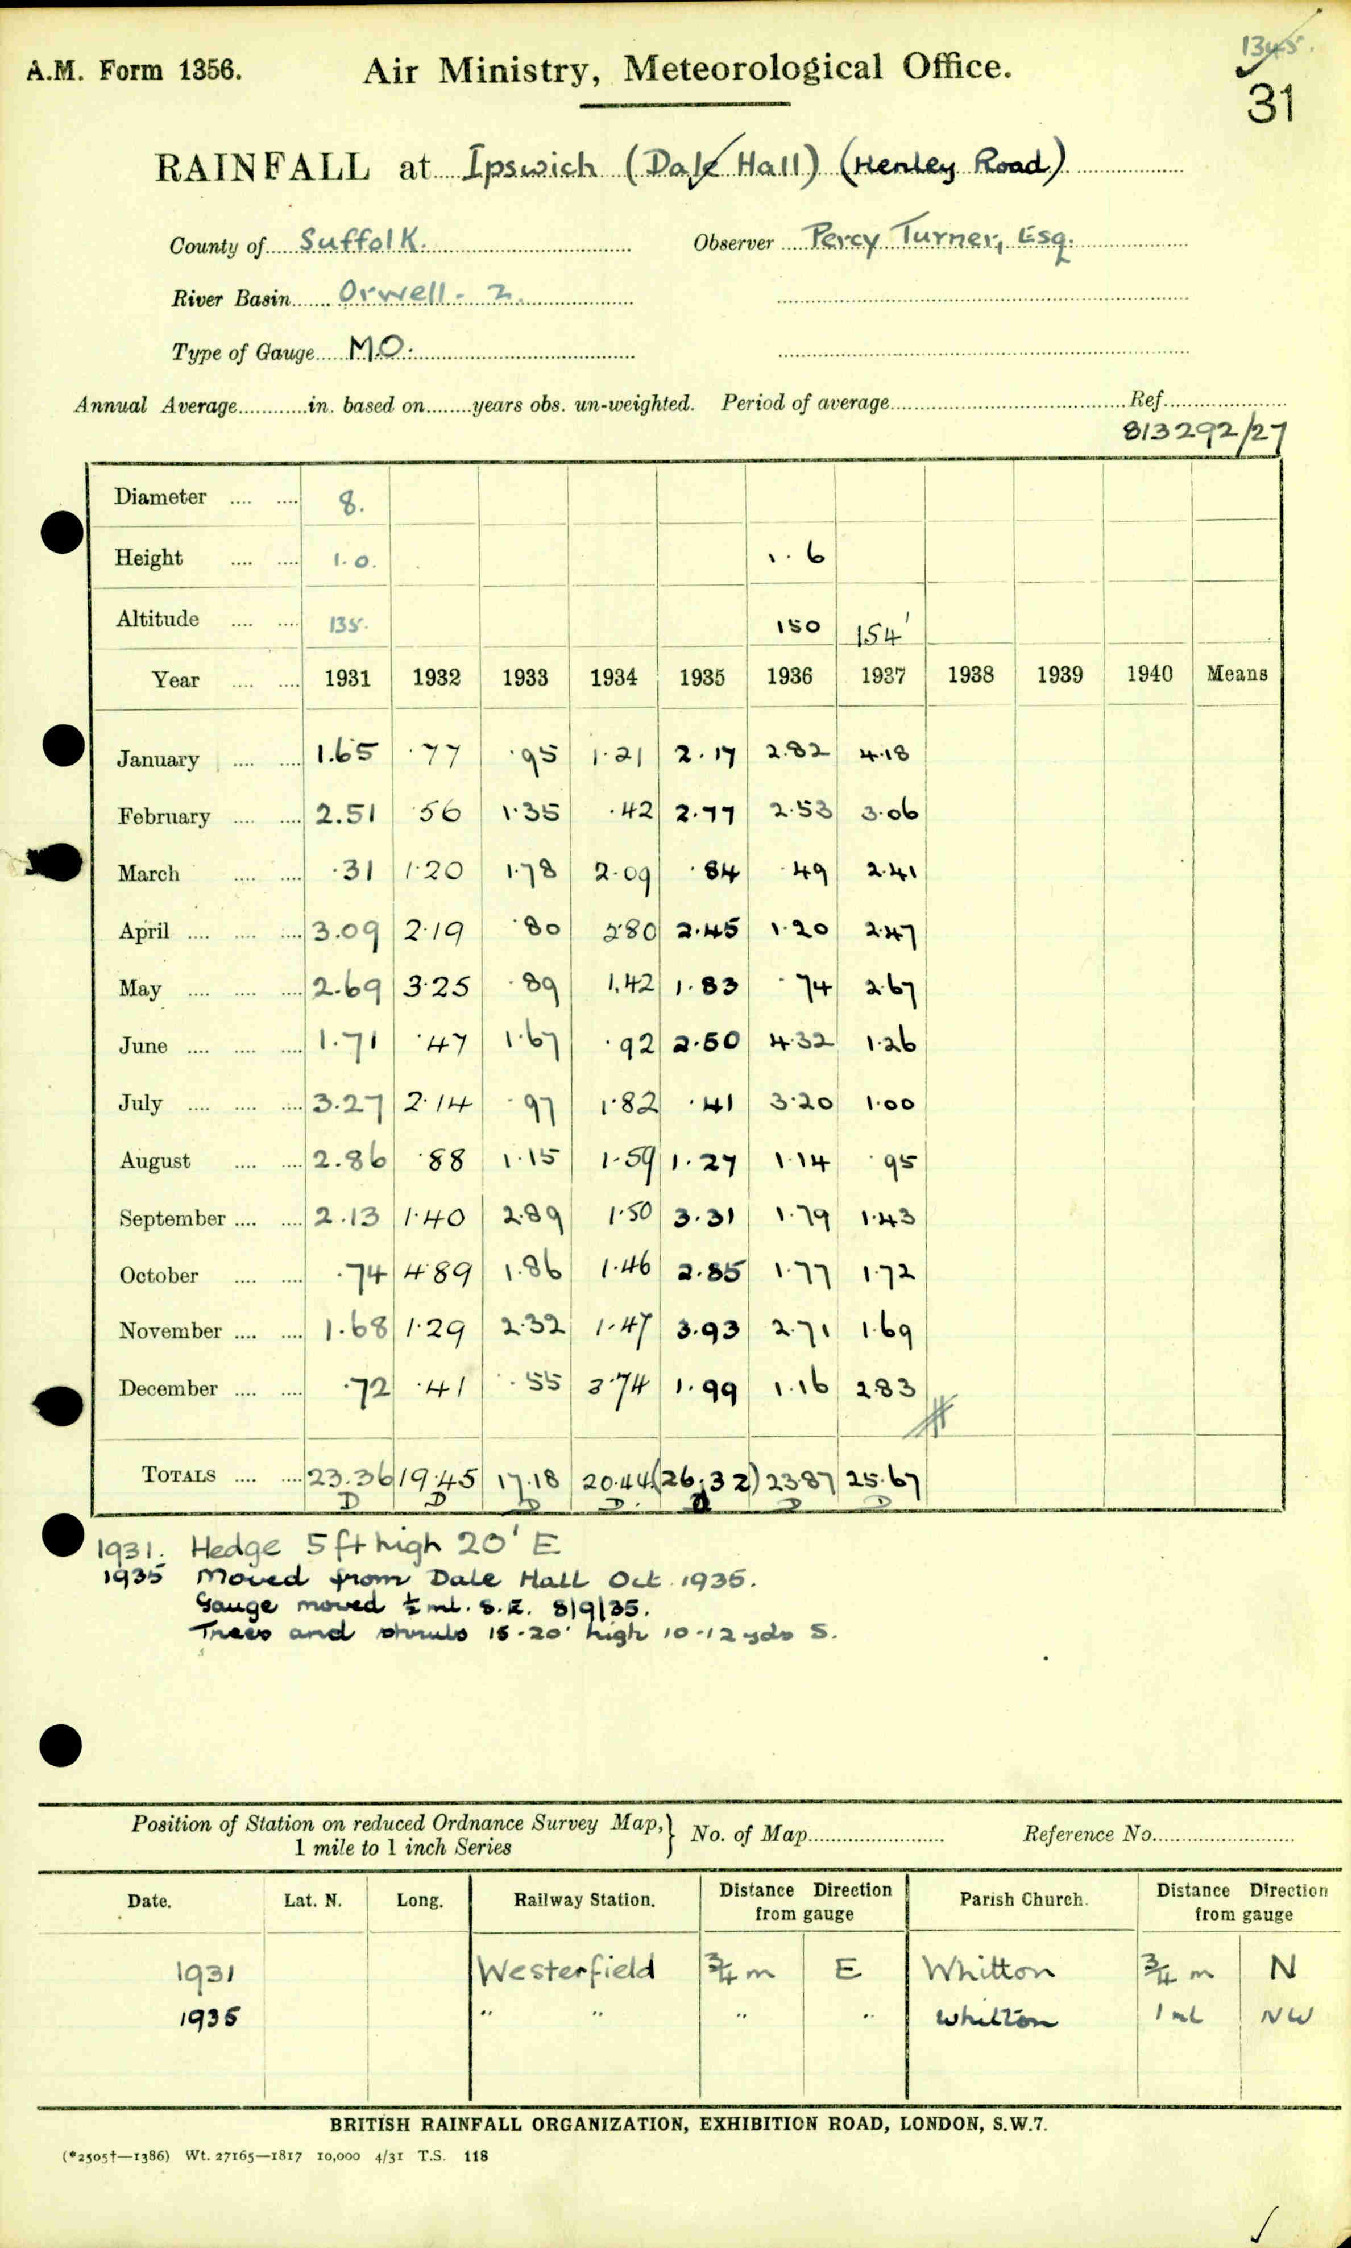 1345.
A.M. Form 1356.
Air Ministry, Meteorological Office.
31
RAINFALL at Ipswich (Dale Hall) (Henley Road)
County of Suffolk. Observer Percy Turner, Esq.
River Basin Orwell - 2.
Type of Gauge M.O.
Annual Average in. based on years obs. un-weighted. Period of average Ref.
813292/27
Diameter 8.
Height 1.0. 1.6
Altitude 135. 150 154'
Year 1931 1932 1933 1934 1935 1936 1937 1938 1939 1940 Means
January 1.65 .77 .95 1.21 2.17 2.82 4.18
February 2.51 .56 1.35 .42 2.77 2.53 3.06
March .31 1.20 1.78 2.09 .84 .49 2.41
April 3.09 2.19 .80 2.80 2.45 1.20 2.47
May 2.69 3.25 .89 1.42 1.83 .74 2.67
June 1.71 .47 1.67 .92 2.50 4.32 1.26
July 3.27 2.14 .97 1.82 .41 3.20 1.00
August 2.86 .88 1.15 1.59 1.27 1.14 .95
September 2.13 1.40 2.89 1.50 3.31 1.79 1.43
October .74 4.89 1.86 1.46 2.85 1.77 1.72
November 1.68 1.29 2.32 1.47 3.93 2.71 1.69
December .72 .41 .55 3.74 1.99 1.16 2.83
TOTALS 23.36 19.45 17.18 20.44 (26.32) 23.87 25.67
D D D D. D D D
1931. Hedge 5 ft high 20' E
1935 Moved from Dale Hall Oct. 1935.
Gauge moved ½ ml. S.E. 8/9/35.
Trees and shrubs 15-20' high 10-12 yds S.
Position of Station on reduced Ordnance Survey Map, } No. of Map Reference No.
1 mile to 1 inch Series
Date. Lat. N. Long. Railway Station. Distance Direction from gauge Parish Church. Distance Direction from gauge
1931 Westerfield ¾ m E Whitton ¾ m N
1935 " " " " Whitton 1 ml NW
BRITISH RAINFALL ORGANIZATION, EXHIBITION ROAD, LONDON, S.W.7.
(*2505†—1386) Wt. 27165—1817 10,000 4/31 T.S. 118